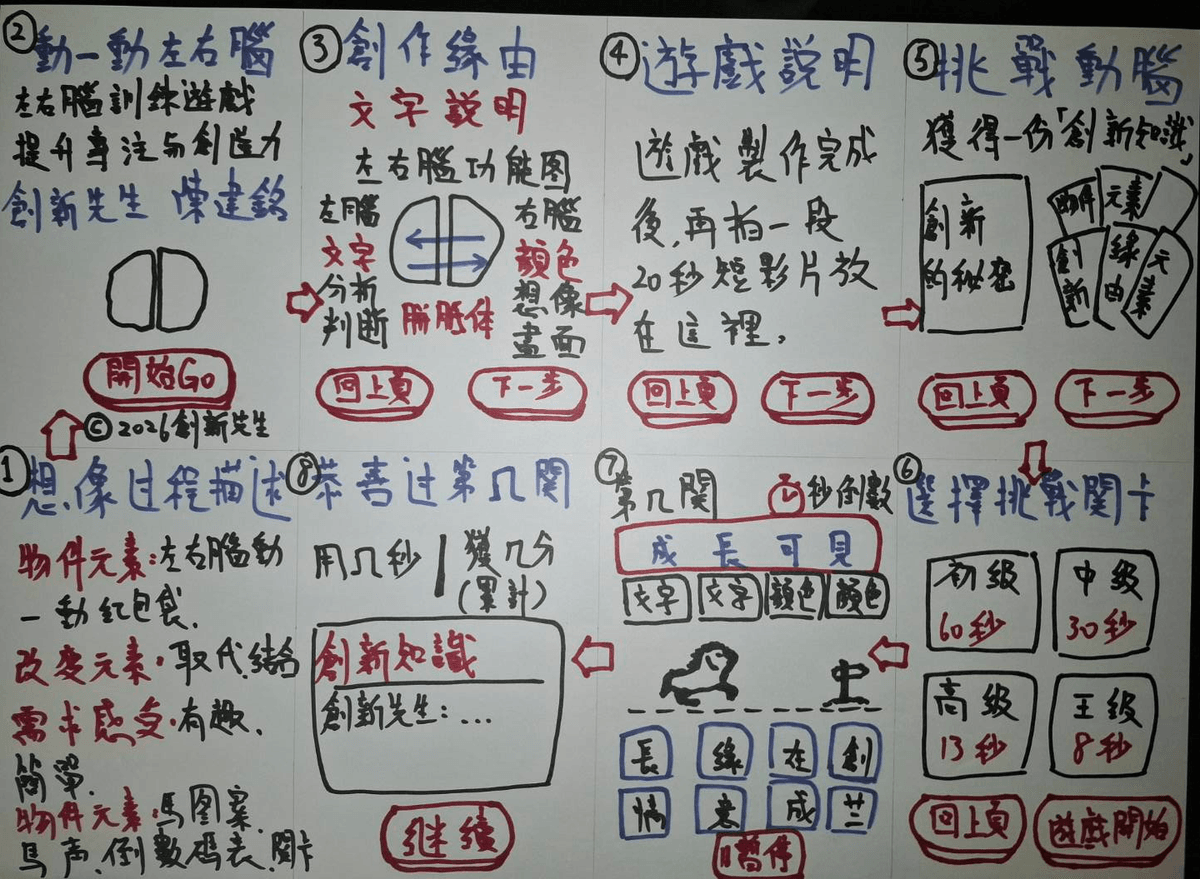 ②
動一動左右腦
左右腦訓練遊戲
提升專注与創造力
創新先生 陳建銘
開始Go
©2026創新先生
③
創作緣由
文字説明
左右腦功能图
左腦
文字
分析
判斷
右腦
顏色
想像
畫面
胼胝体
回上頁
下一步
④
遊戲説明
遊戲製作完成
後,再拍一段
20秒短影片放
在這裡。
回上頁
下一步
⑤
挑戰動腦
獲得一份「創新知識」
創新
的秘密
物件
元素
創新
緣由
元素
回上頁
下一步
①
想像过程描述
物件元素:左右腦動
一動紅包袋.
改变元素·取代.結合
需求感受·有趣.
簡單.
物件元素·馬图案.
馬声.倒數碼表.関卡
⑧
恭喜过第几関
用几秒
獲几分
(累計)
創新知識
創新先生:...
继續
⑦
第几関
秒倒數
成長可見
文字
文字
顏色
顏色
長
緣
在
創
情
意
成
竺
II暫停
⑥
選擇挑戰関卡
初級
60秒
中級
30秒
高級
13秒
王級
8秒
回上頁
遊戲開始